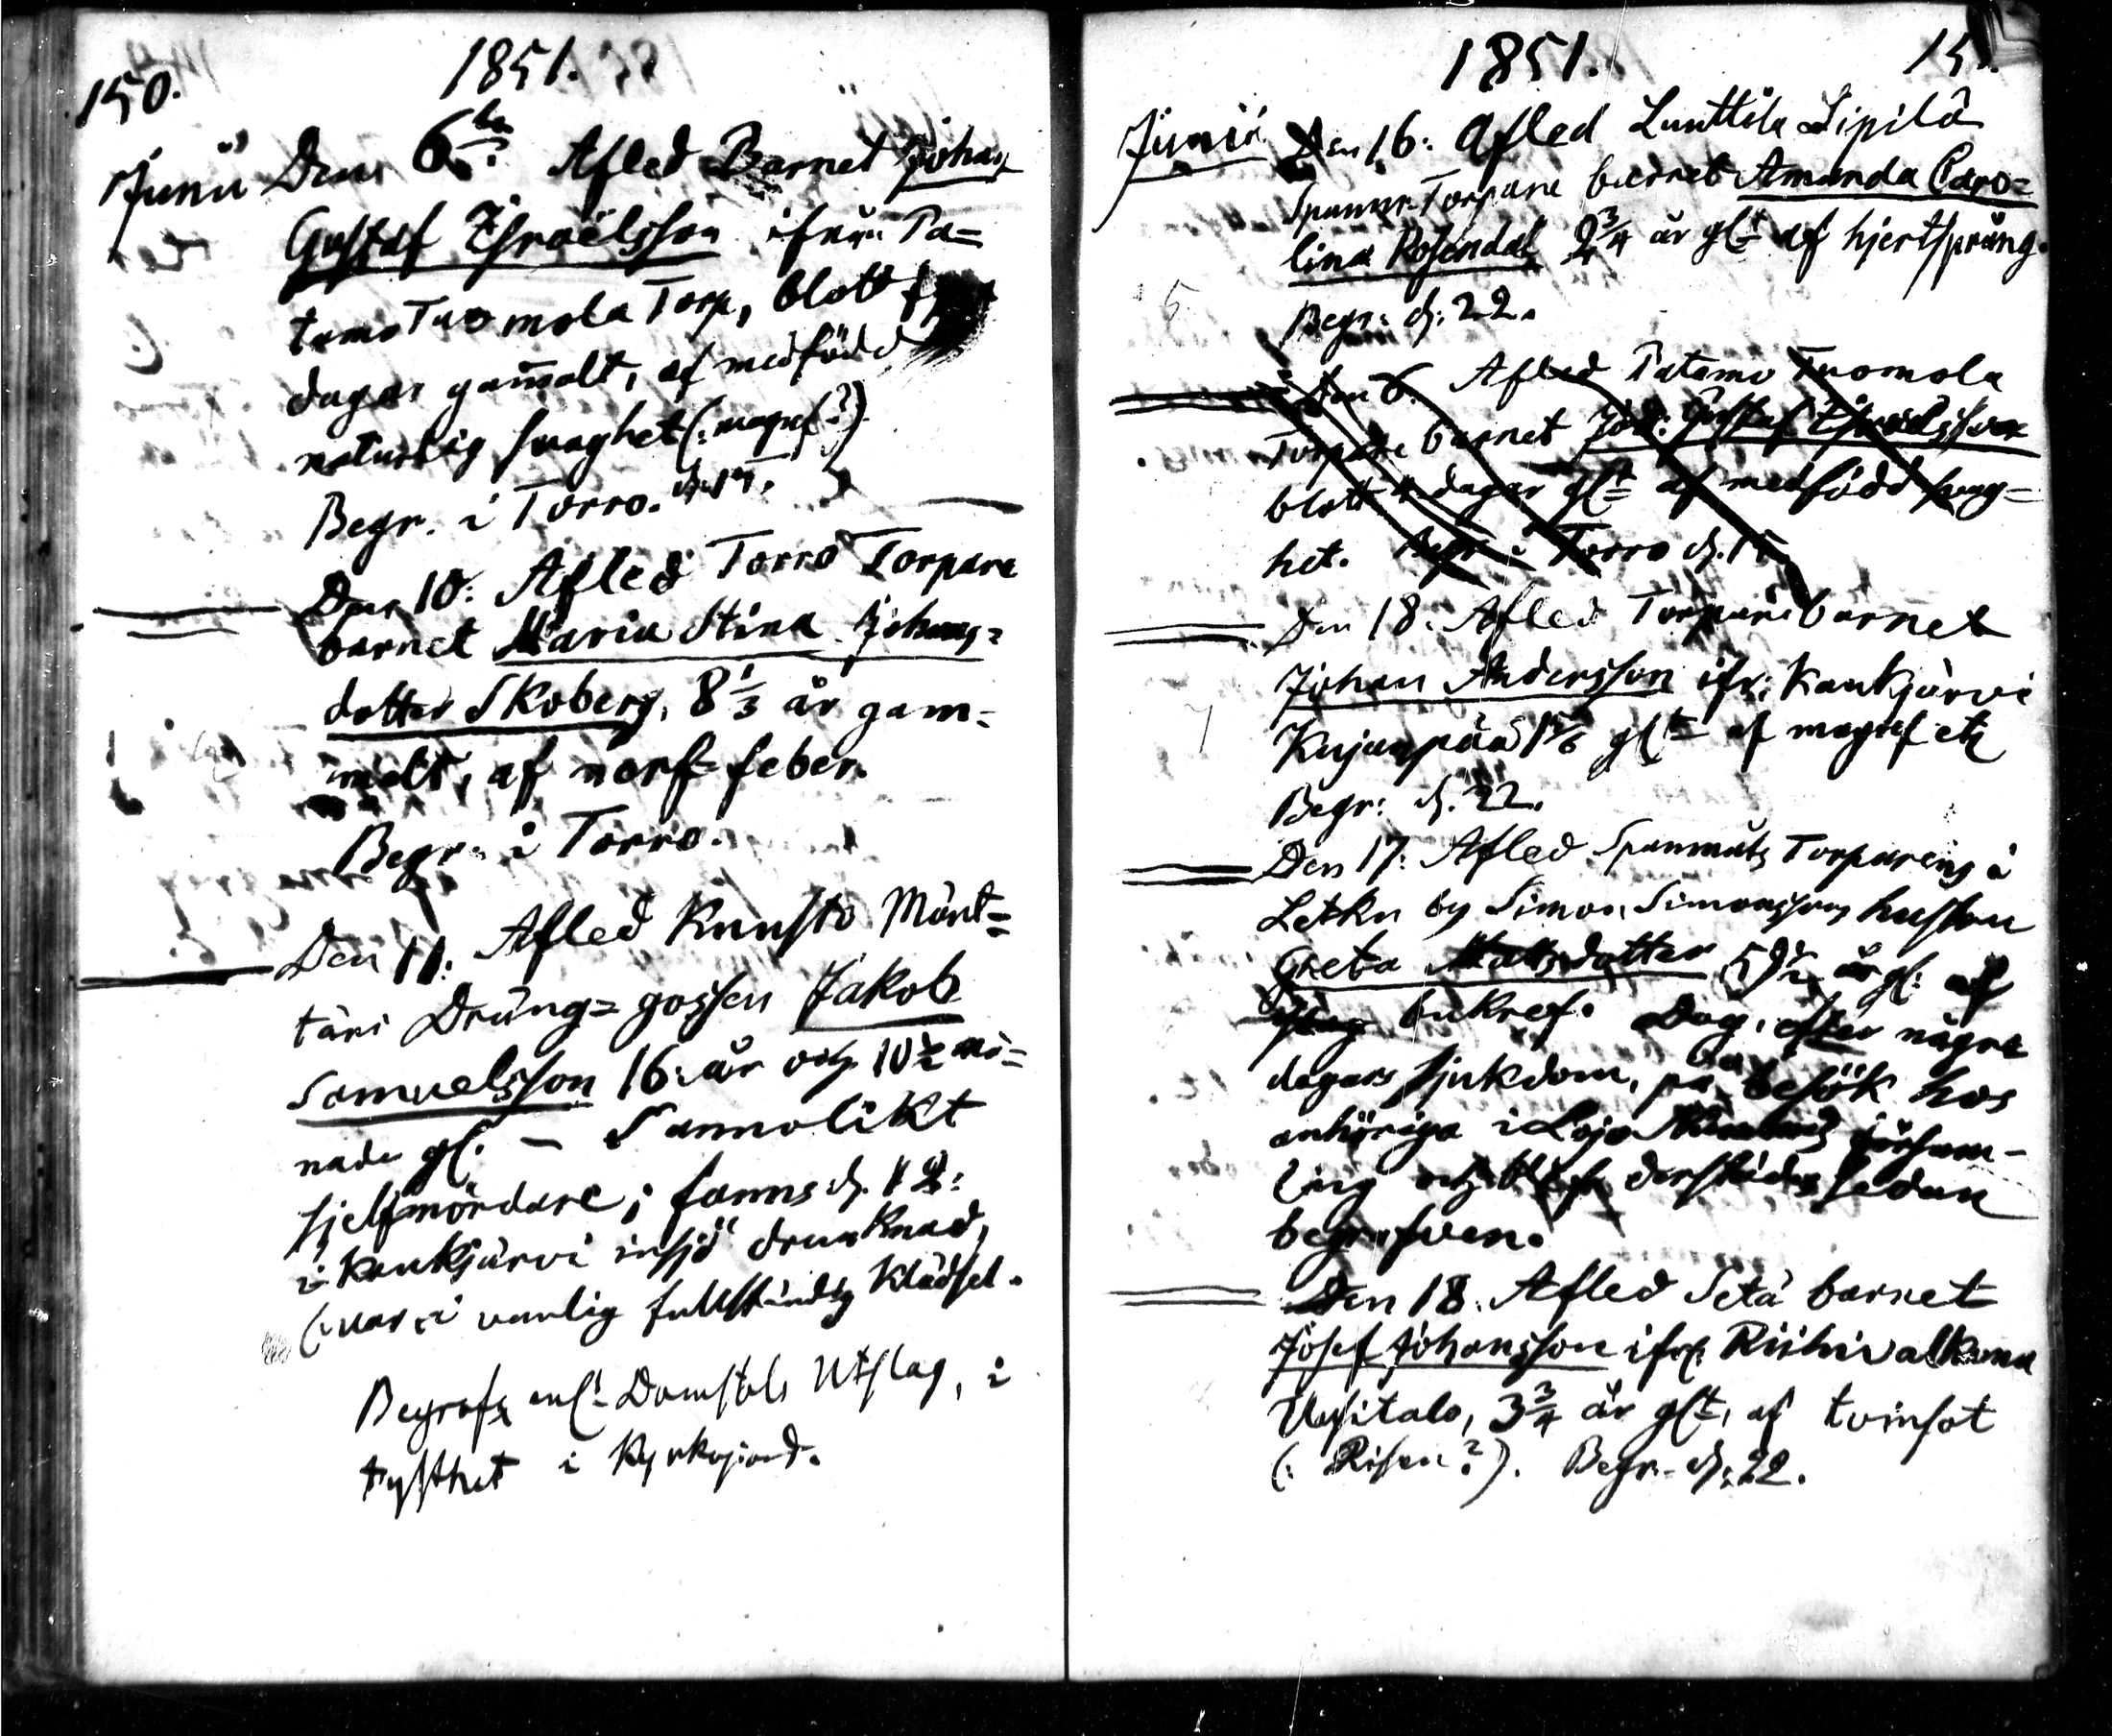 150.
1851.
Junii Den 6te Afled Barnet Johan
Gustaf Israëlsson ifrån Pa=
tamo Tuomola Torp, blott
dagar gam̄alt, af medfödd
naturlig svaghet (: magref ?)
Begr. i Torro. d. 15.
Den 10. Afled Torro Torpare
barnet Maria Stina Johans=
dotter Skoberg, 8 1/3 år gam=
malt, af nerf-feber.
Begr. i Torro.
Den 11. Afled Kuusto Mänt=
täri Dräng=gossen Jakob
Samuelsson 16 år och 10 1/2 må=
nader gl. – Sannolikt
sjelfmördare; fanns d. 12:
i Kaukjärvi insjö drunknad,
(: var i vanlig fullständig klädsel.
Begrofs enl. Domstols Utslag, i
tysthet i Kyrkojord.
1851.
151.
Junii Den 16. Afled Lunttila Sipilä
Spannm. Torpare barnet Amanda Caro=
lina Rosendal, 2 3/4 år glt af hjertsprång.
Begr. d. 22.
Den 6. Afled Patamo Tuomola
Torpare barnet Joh: Gustaf Israelsson
blott 4 dagar glt af medfödd svag=
het. Begr. i Torro d. 15.
Den 18. Afled Torpare barnet
Johan Andersson ifr: Kaukjärvi
Kujanpää 1 5/6 glt af magref etc
Begr: d. 22.
Den 17. Afled Spanmåls Torparens å
Letku by Simon Simonssons hustru
Greta Mattsdotter 59 1/2 år gl. af
bukref. Dog, efter några
dagars sjukdom, på besök hos
anhöriga i Lojo församl-
ing och blef derstädes sedan
begrafven.
Den 18. Afled Setä barnet
Josef Johansson ifr. Riihivalkama
Uusitalo, 3 3/4 år glt, af tvinsot
(: Risen ?). Begr. d. 22.